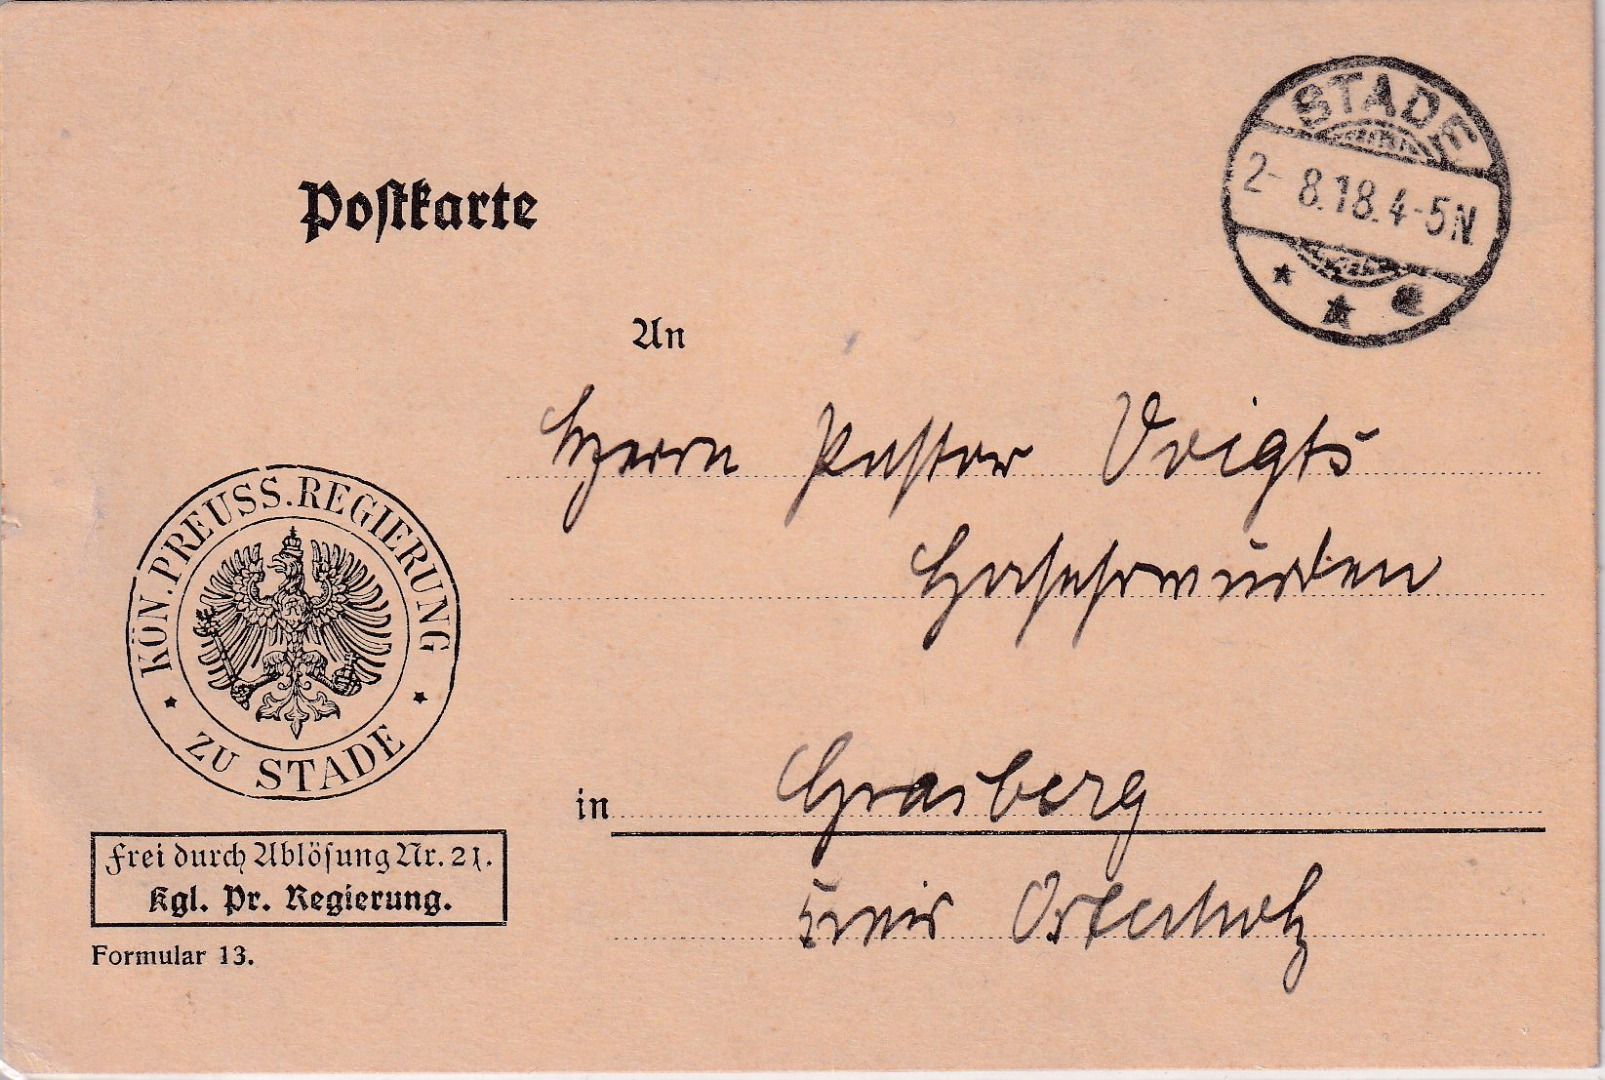 STADE
2-8.18.4-5N.
Postkarte
An
Herrn Pastor Voigts
Hochehrwürden
KÖN. PREUSS. REGIERUNG
ZU STADE
in Grasberg
Kreis Osterholz
Frei durch Ablösung Nr. 21.
Kgl. Pr. Regierung.
Formular 13.